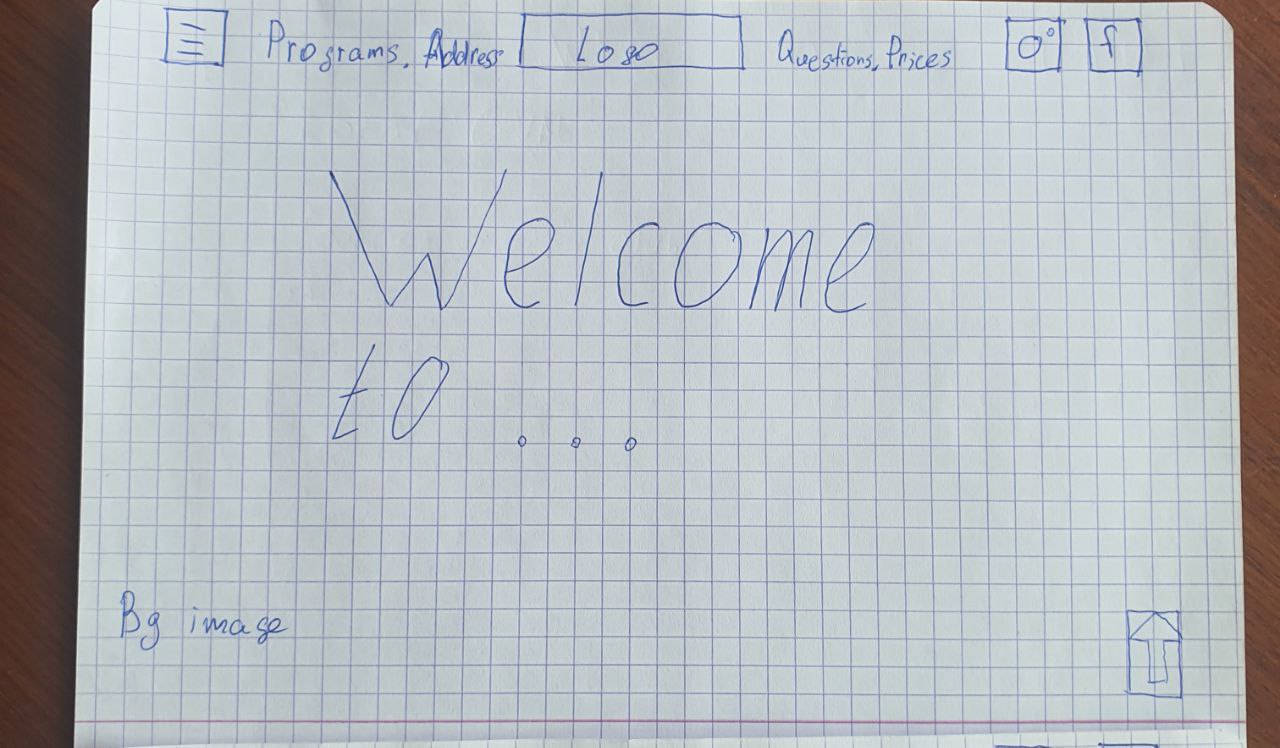 Programs, Address Logo Questions, Prices f
Welcome
to ...
Bg image